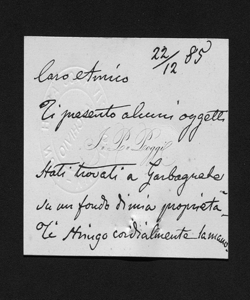 22/12 85
Caro Amico
Ti presento alcuni oggetti
Poggi
stati trovati a Garbagnate
in un fondo di mia proprietà
Ti stringo cordialmente la mano